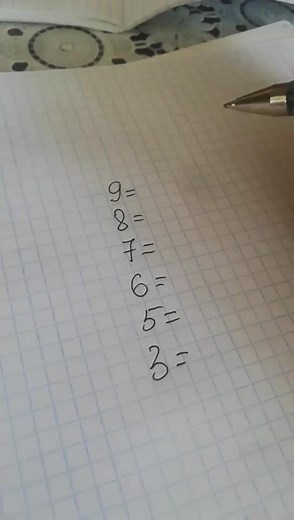 9=
8=
7=
6=
5=
3=